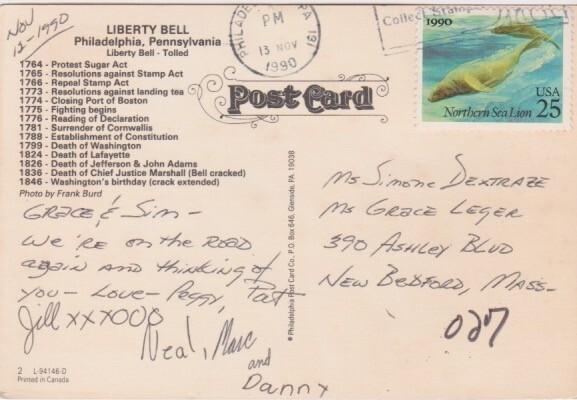 Nov
12-1990
LIBERTY BELL
Philadelphia, Pennsylvania
Liberty Bell - Tolled
1764 - Protest Sugar Act
1765 - Resolutions against Stamp Act
1766 - Repeal Stamp Act
1773 - Resolutions against landing tea
1774 - Closing Port of Boston
1775 - Fighting begins
1776 - Reading of Declaration
1781 - Surrender of Cornwallis
1788 - Establishment of Constitution
1799 - Death of Washington
1824 - Death of Lafayette
1826 - Death of Jefferson & John Adams
1836 - Death of Chief Justice Marshall (Bell cracked)
1846 - Washington's birthday (crack extended)
Photo by Frank Burd
Grace & Sim -
We're on the Road
again and thinking of
you - Love - Peggy, Pat
Jill xxxooo
Neal, Marc
and
Danny
2 L-94146-D
Printed in Canada
Post Card
© Philadelphia Post Card Co., P.O. Box 646, Glenside, PA. 19038
PHILADELPHIA, PA 191
PM
13 NOV
1990
Collect Stamps
1990
Northern Sea Lion
USA
25
Ms Simone Dextraze
Ms Grace Leger
390 Ashley Blvd
New Bedford, Mass-
027